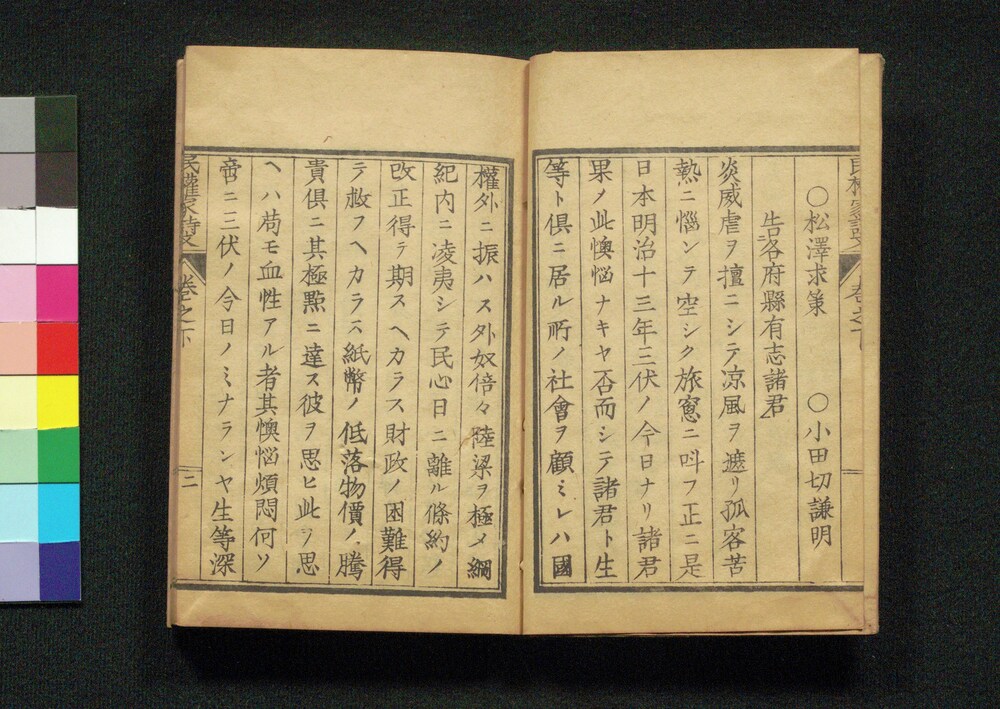 ○松澤求策　○小田切謙明
告各府縣有志諸君
炎威虐ヲ擅ニシテ凉風ヲ遮リ孤客苦
熱ニ惱ンテ空シク旅窻ニ呌フ正ニ是
日本明治十三年三伏ノ今日ナリ諸君
果ノ此懊惱ナキヤ否而シテ諸君ト生
等ト俱ニ居ル所ノ社會ヲ顧ミレハ國
權外ニ振ハス外奴倍々陸梁ヲ極メ綱
紀内ニ凌夷シテ民心日ニ離ル條約ノ
改正得テ期スヘカラス財政ノ困難得
テ救フヘカラス紙幣ノ低落物價ノ騰
貴俱ニ其極點ニ達ス彼ヲ思ヒ此ヲ思
ヘハ苟モ血性アル者其懊惱煩悶何ソ
啻ニ三伏ノ今日ノミナランヤ生等深
民權家詩文　卷之下　三